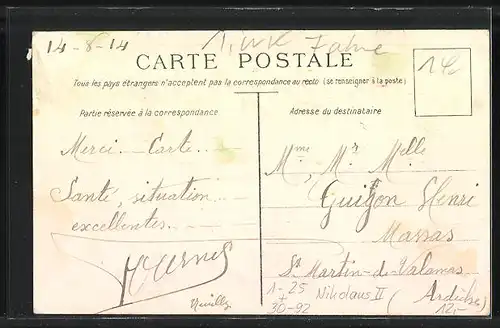 14-8-14
CARTE POSTALE
Tous les pays étrangers n'acceptent pas la correspondance au recto (se renseigner à la poste)
Partie réservée à la correspondance
Merci Carte
Santé, situation
excellentes
Neuilly
Adresse du destinataire
Mme, Mr Melle
Guigon Henri
Massas
St Martin-de-Valamas
(Ardèche)
1-25
+
30-92
Nikolaus II
12,-